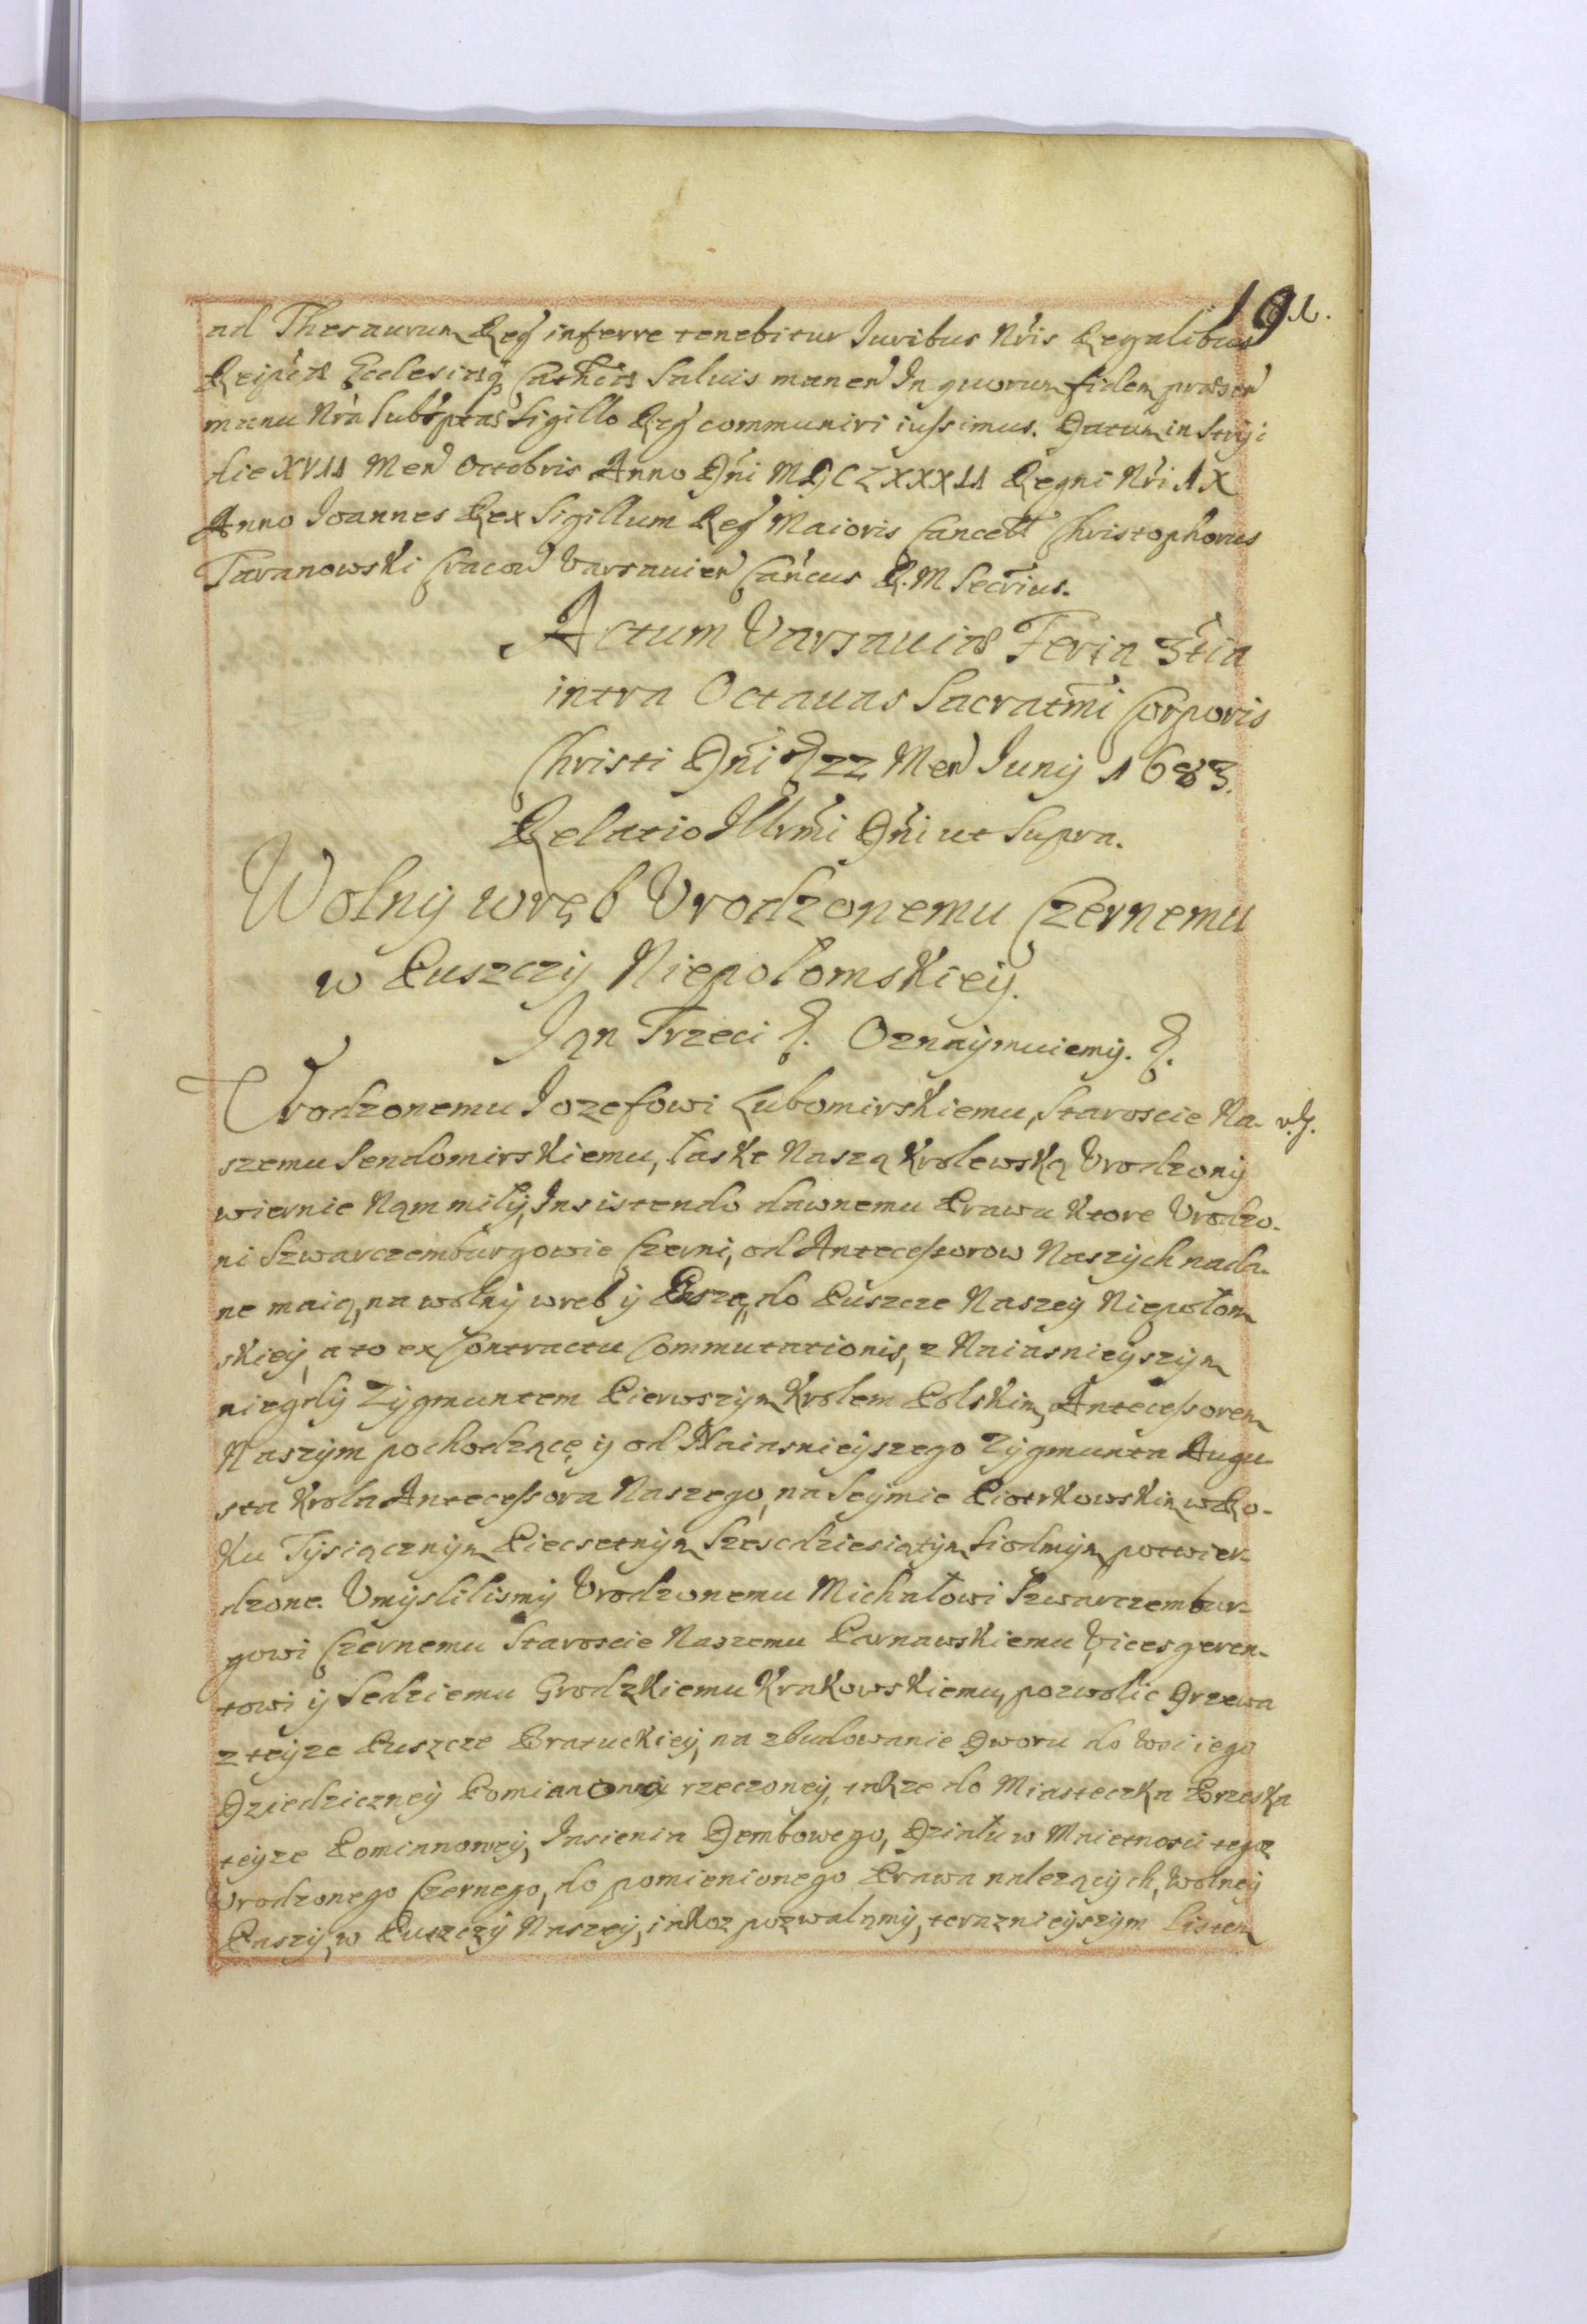 191.
ad Thesaurum Reg inferre tenebitur Iuribus Nris Regalibus
Reipca Ecclesiaeq Cathcae Saluis manen In quorum fidem praesen
manu Nra Subsptas Sigillo Reg communiri iussimus. Datum in Stryi
die XVII Men Octobris Anno Dni MDCLXXXII Regni Nri IX
Anno Ioannes Rex Sigillum Reg Maioris Cancell Christophorus
Taranowski Cracou Varsauien Cancus R. M Secrius.
Actum Varsauiae Feria 3tia
intra Octauas Sacratmi Corporis
Christi Dni D 22 Men Iuny 1683.
Relatio Illrmi Dni ut Supra.
Wolny wręb Vrodzonemu Czernemu
w Puszczy Niepołomskiey.
Ian Trzeci &. Oznaymuiemy. &.
Vrodzonemu Iozefowi Lubomirskiemu, Staroscie Na-
szemu Sendomirskiemu, łaske Naszą Krolewską Vrodzony
wiernie Nam miły, Insistendo dawnemu Prawu Ktore Vrodzo-
ni Szwarczemburgowie Czerni, od Antecessorow Naszych nada-
ne maią, na wolny wreb y Paszę do Puszcze Naszey Niepołom
skiey, a to ex Contractu Commutationis, z Naiasnieyszym
niegdy Zygmuntem Pierwszym Krolem Polskim, Antecessorem
Naszym pochodzącę y od Naiasnieyszego Zygmunta Augu-
sta Krola Antecessora Naszego, na Seymie Piotrkowskim w Ro-
ku Tysiącznym Piecsetnym Szescdziesiątym siodmym potwier-
dzone. Vmyslilismy Vrodzonemu Michałowi Szwarczembur-
gowi Czernemu Staroscie Naszemu Parnawskiemu, Vicesgeren-
towi y Sedziemu Grodzkiemu Krakowskiemu, pozwolic Drzewa
z teyze Puszcze Bratuckiey, na zbudowanie Dworu do wsi iego
Dziedziczney Pomianowa rzeczoney, takze do Miasteczka Brzeska
teyze Pomianowey, Iasienia Dembowego, Działu w Maietnosci tegoz
Vrodzonego Czernego, do pomienionego Prawa nalezących, wolney
Paszy, w Puszczy Naszey, iakoz pozwalamy, teraznieyszym Listem